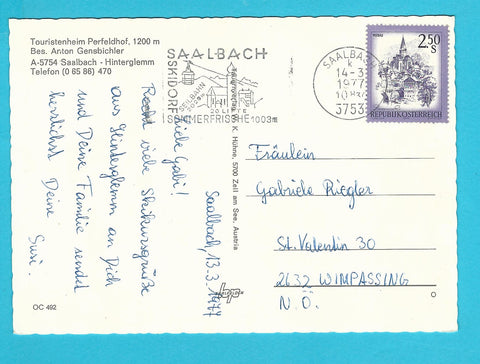 Touristenheim Perfeldhof, 1200 m
Bes. Anton Gensbichler
A-5754 Saalbach - Hinterglemm
Telefon (0 65 86) 470
SAALBACH
SKIDORF
20 LIFTE
SOMMERFRISCHE 1003m
SAALBACH
14-3
1977
5753
2.50 S
REPUBLIK ÖSTERREICH
K. Hühne, 5700 Zell am See, Austria
Saalbach, 13.3.1977
Liebe Gabi!
Recht viele Skikursgrüße
aus Hinterglemm an Dich
und Deine Familie sendet
herzlichst Deine
Susi.
Fräulein
Gabriele Riegler
St. Valentin 30
2632 WIMPASSING
N.Ö.
OC 492